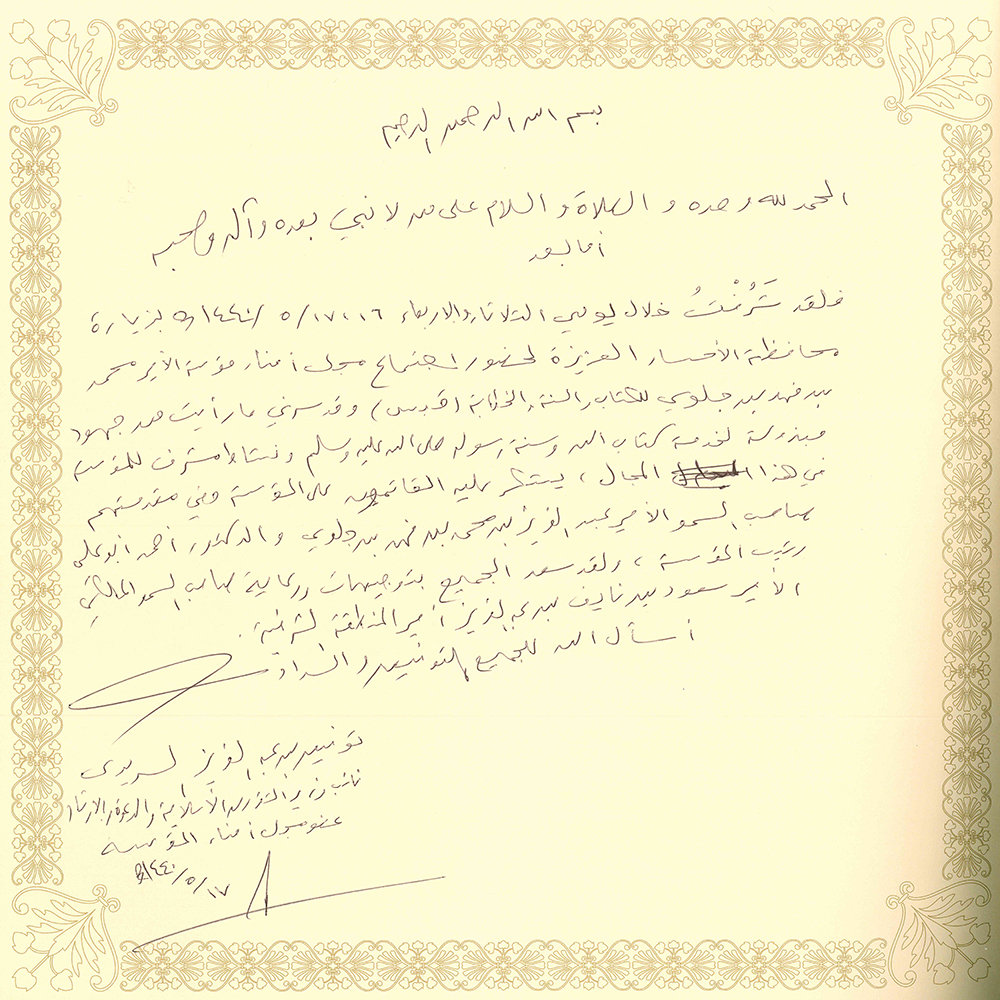 بسم الله الرحمن الرحيم
الحمد لله وحده و الصلاة و السلام على من لا نبي بعده وآله وصحبه
أما بعد
فلقد شَرُفْتُ خلال يومي الثلاثاء والأربعاء ١٦، ١٧/ ٥ /١٤٤٠هـ بزيارة
محافظة الأحساء العزيزة لحضور اجتماع مجلس أمناء مؤسسة الأمير محمد
بن فهد بن جلوي للكتاب والسنة والخطابة (قبس) وقد سرني ما رأيت من جهود
مبذولة لخدمة كتاب الله وسنة رسوله صلى الله عليه وسلم ونشاط مشرف للمؤسسة
في هذا المجال ، يشكر عليه القائمون على المؤسسة وفي مقدمتهم
صاحب السمو الأمير عبد العزيز بن محمد بن فهد بن جلوي والدكتور أحمد البوعلي
رئيس المؤسسة ، ولقد سعد الجميع بتوجيهات ورعاية صاحب السمو الملكي
الأمير سعود بن نايف بن عبد العزيز أمير المنطقة الشرقية .
أسأل الله للجميع التوفيق والسداد
توفيق بن عبد العزيز السديري
نائب وزير الشؤون الإسلامية والدعوة والإرشاد
عضو مجلس أمناء المؤسسة
١٧/ ٥ /١٤٤٠هـ